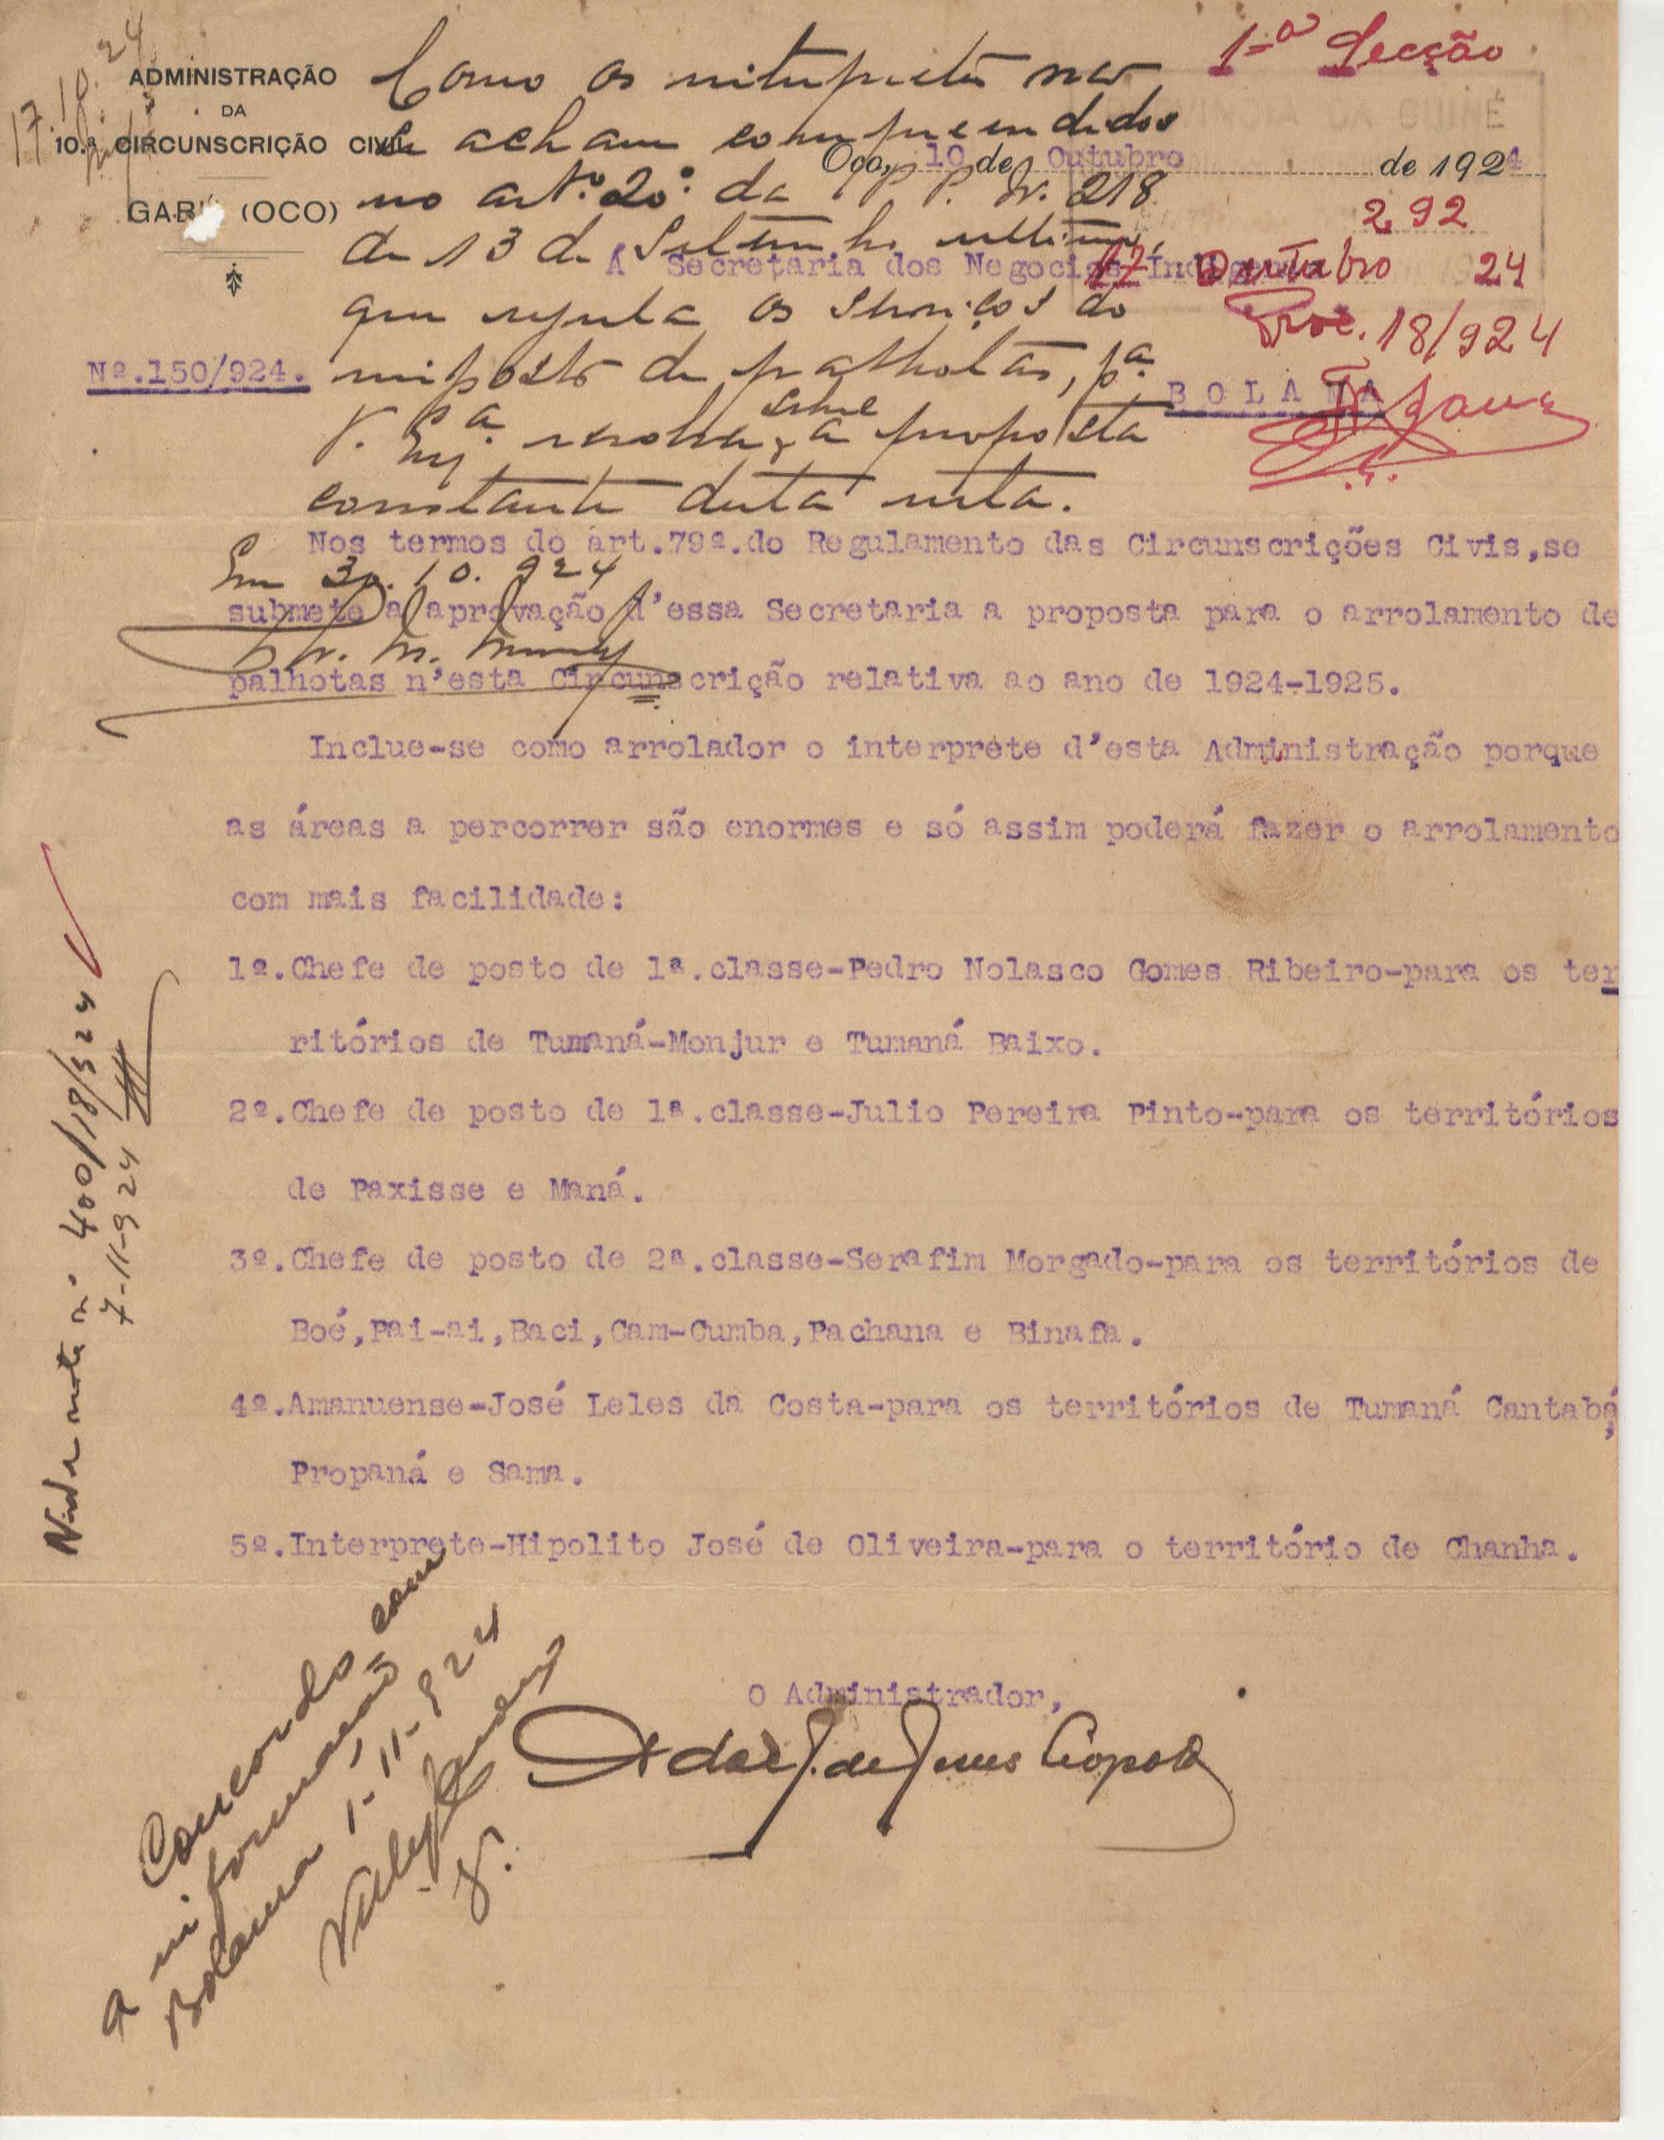 17.10.24
ADMINISTRAÇÃO
DA
10.ª CIRCUNSCRIÇÃO CIVIL
GABÚ (OCO)
1-ª Secção
Como os interpretes não
se acham comprehendidos
no artº. 20º. da P. P. Nº. 218
de 13 de Setembro ultimo,
que regula os serviços do
imposto de palhotas, pª.
V. Exª. resolver sobre a proposta
constante desta nota.
Em 30.10.924
Oco, 10 de Outubro de 1924
292
17 Outubro 24
Proc. 18/924
Á Secretaria dos Negocios Indigenas
Nº.150/924.
B O L A M A
Nos termos do art.79º.do Regulamento das Circunscrições Civis,se
submete á aprovação d'essa Secretaria a proposta para o arrolamento de
palhotas n'esta Circunscrição relativa ao ano de 1924-1925.
Inclue-se como arrolador o interprete d'esta Administração porque
as áreas a percorrer são enormes e só assim poderá fazer o arrolamento
com mais facilidade:
1º.Chefe de posto de 1ª.classe-Pedro Nolasco Gomes Ribeiro-para os ter
ritórios de Tumaná-Monjur e Tumaná Baixo.
2º.Chefe de posto de 1ª.classe-Julio Pereira Pinto-para os territórios
de Paxisse e Maná.
3º.Chefe de posto de 2ª.classe-Serafim Morgado-para os territórios de
Boé,Pai-ai,Baci,Cam-Cumba,Pachana e Binafa.
4º.Amanuense-José Leles da Costa-para os territórios de Tumaná Cantabá,
Propaná e Sama.
5º.Interprete-Hipolito José de Oliveira-para o território de Chanha.
O Administrador,
de Jesus Leopoldo
nota nº 400/18/924
7-11-924
Concordo com
a informação
Bolama 1-11-924